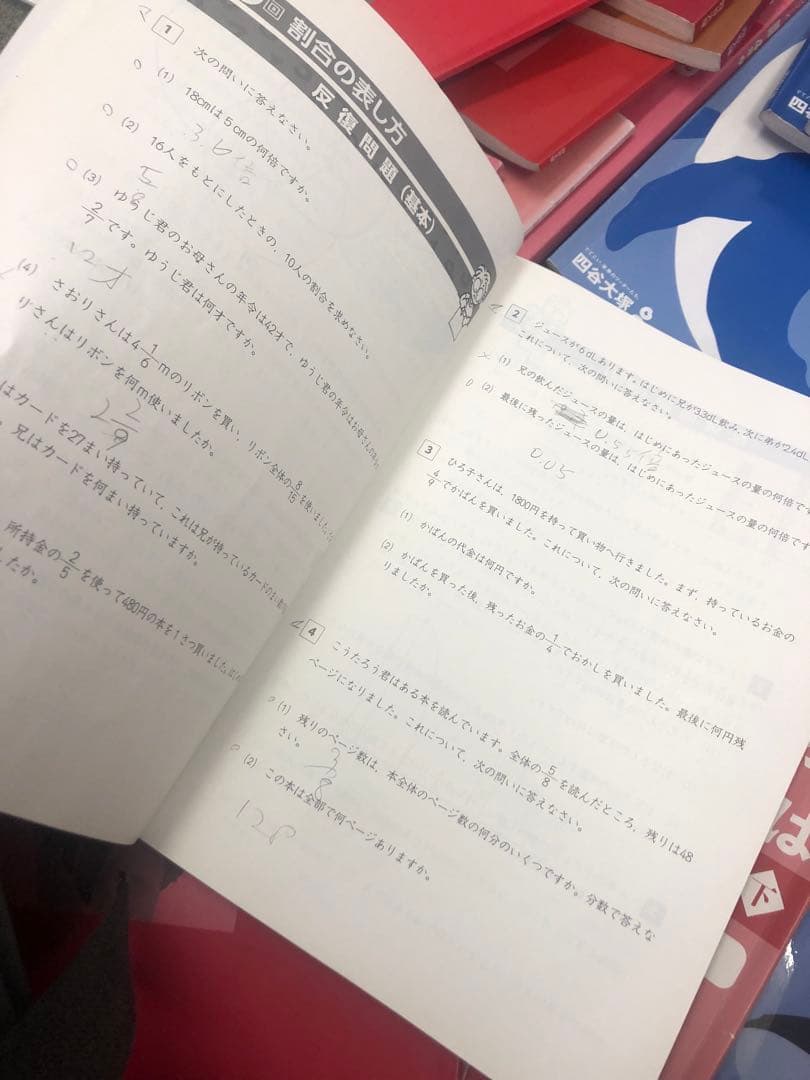 回 割合の表し方
反復問題（基本）
1 次の問いに答えなさい。
(1) 18cmは5cmの何倍ですか。
3.6倍
(2) 16人をもとにしたときの、10人の割合を求めなさい。
5/8
(3) ゆうじ君のお母さんの年令は42才で、ゆうじ君の年令はお母さんの年令の
2/7です。ゆうじ君は何才ですか。
12才
(4) さおりさんは4 1/6mのリボンを買い、リボン全体の8/15を使いました。
りさんはリボンを何m使いましたか。
2 2/9
はカードを27まい持っていて、これは兄が持っているカードの
兄はカードを何まい持っていますか。
所持金の2/5を使って480円の本を1さつ買いました。
したか。
2 ジュースが6dLあります。はじめに兄が3.3dL飲み、次に弟が2.4dL
これについて、次の問いに答えなさい。
(1) 兄の飲んだジュースの量は、はじめにあったジュースの量の何倍で
0.55倍
(2) 最後に残ったジュースの量は、はじめにあったジュースの量の何倍です
0.05
3 ひろ子さんは、1800円を持って買い物へ行きました。まず、持っているお金の
4/9でかばんを買いました。これについて、次の問いに答えなさい。
(1) かばんの代金は何円ですか。
(2) かばんを買った後、残ったお金の1/4でおかしを買いました。最後に何円残
りましたか。
4 こうたろう君はある本を読んでいます。全体の5/8を読んだところ、残りは48
ページになりました。これについて、次の問いに答えなさい。
(1) 残りのページ数は、本全体のページ数の何分のいくつですか。分数で答えな
さい。
3/8
(2) この本は全部で何ページありますか。
128
四谷大塚
四谷大塚
は
下